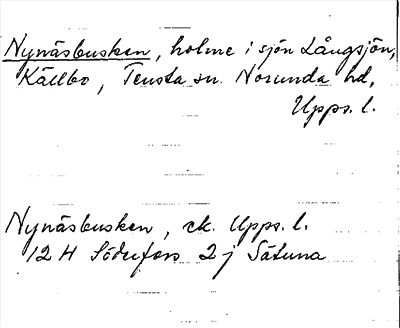 Nynäsbusken, holme i sjön Långsjön,
Källbo, Tensta sn. Norunda hd,
Upps. l.
Nynäsbusken, ek. Upps. l.
12 H Söderfors 2 j Sätuna